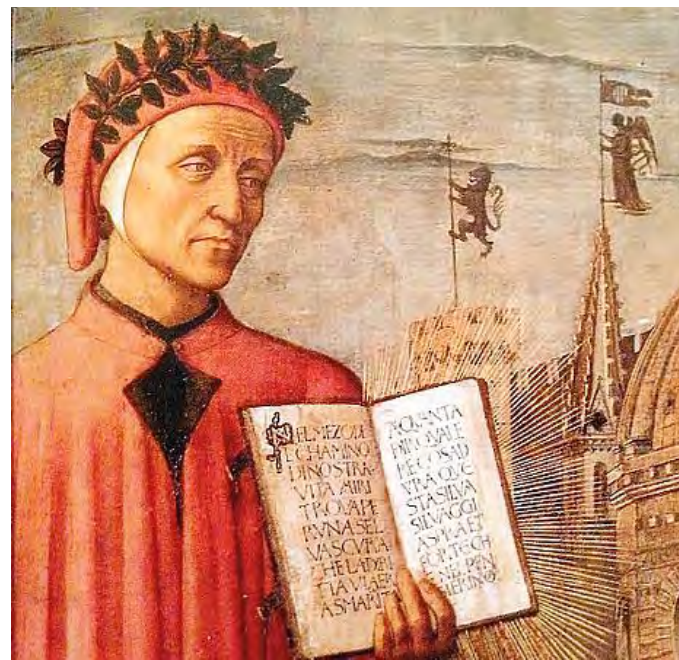 NELMEZO DE
L CHAMINO
DINOSTRA
VITA MIRI
TROVAPE
RVNASEL
VASCVRA
CHE LADIRI
TTA VIAER
ASMARIT
AQUANTA
DIR QVALE
RECOSAD
VRA QVE
STASILVA
SILVAGGI
ASPRAET
FORTECH
NEL PEN